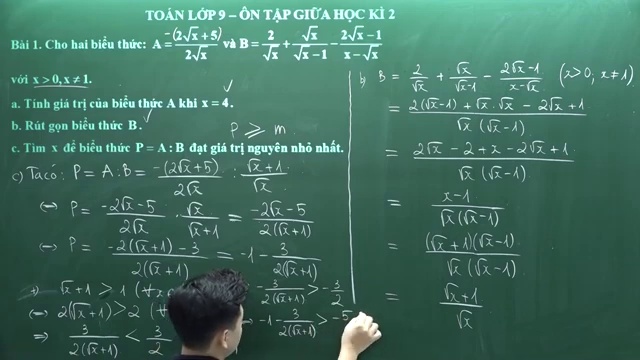 TOÁN LỚP 9 – ÔN TẬP GIỮA HỌC KÌ 2
Bài 1. Cho hai biểu thức: A = -(2√x + 5)/(2√x) và B = 2/√x + √x/(√x − 1) − (2√x − 1)/(x − √x)
với x > 0, x ≠ 1.
a. Tính giá trị của biểu thức A khi x = 4.
b. Rút gọn biểu thức B.
P ⩾ m
c. Tìm x để biểu thức P = A : B đạt giá trị nguyên nhỏ nhất.
c) Ta có: P = A : B = -(2√x + 5)/(2√x) : (√x + 1)/√x
⇔ P = (-2√x - 5)/(2√x) · √x/(√x + 1) = (-2√x - 5)/(2(√x + 1))
⇔ P = (-2(√x + 1) - 3)/(2(√x + 1)) = -1 - 3/(2(√x + 1))
√x + 1 > 1 (∀x
-3/(2(√x + 1)) > -3/2
⇔ 2(√x + 1) > 2 (∀
-1 - 3/(2(√x + 1)) > -5
⇒ 3/(2(√x + 1)) < 3/2
b) B = 2/√x + √x/(√x - 1) - (2√x - 1)/(x - √x) (x > 0; x ≠ 1)
= (2(√x - 1) + √x · √x - 2√x + 1)/(√x (√x - 1))
= (2√x - 2 + x - 2√x + 1)/(√x (√x - 1))
= (x - 1)/(√x (√x - 1))
= ((√x + 1)(√x - 1))/(√x (√x - 1))
= (√x + 1)/√x